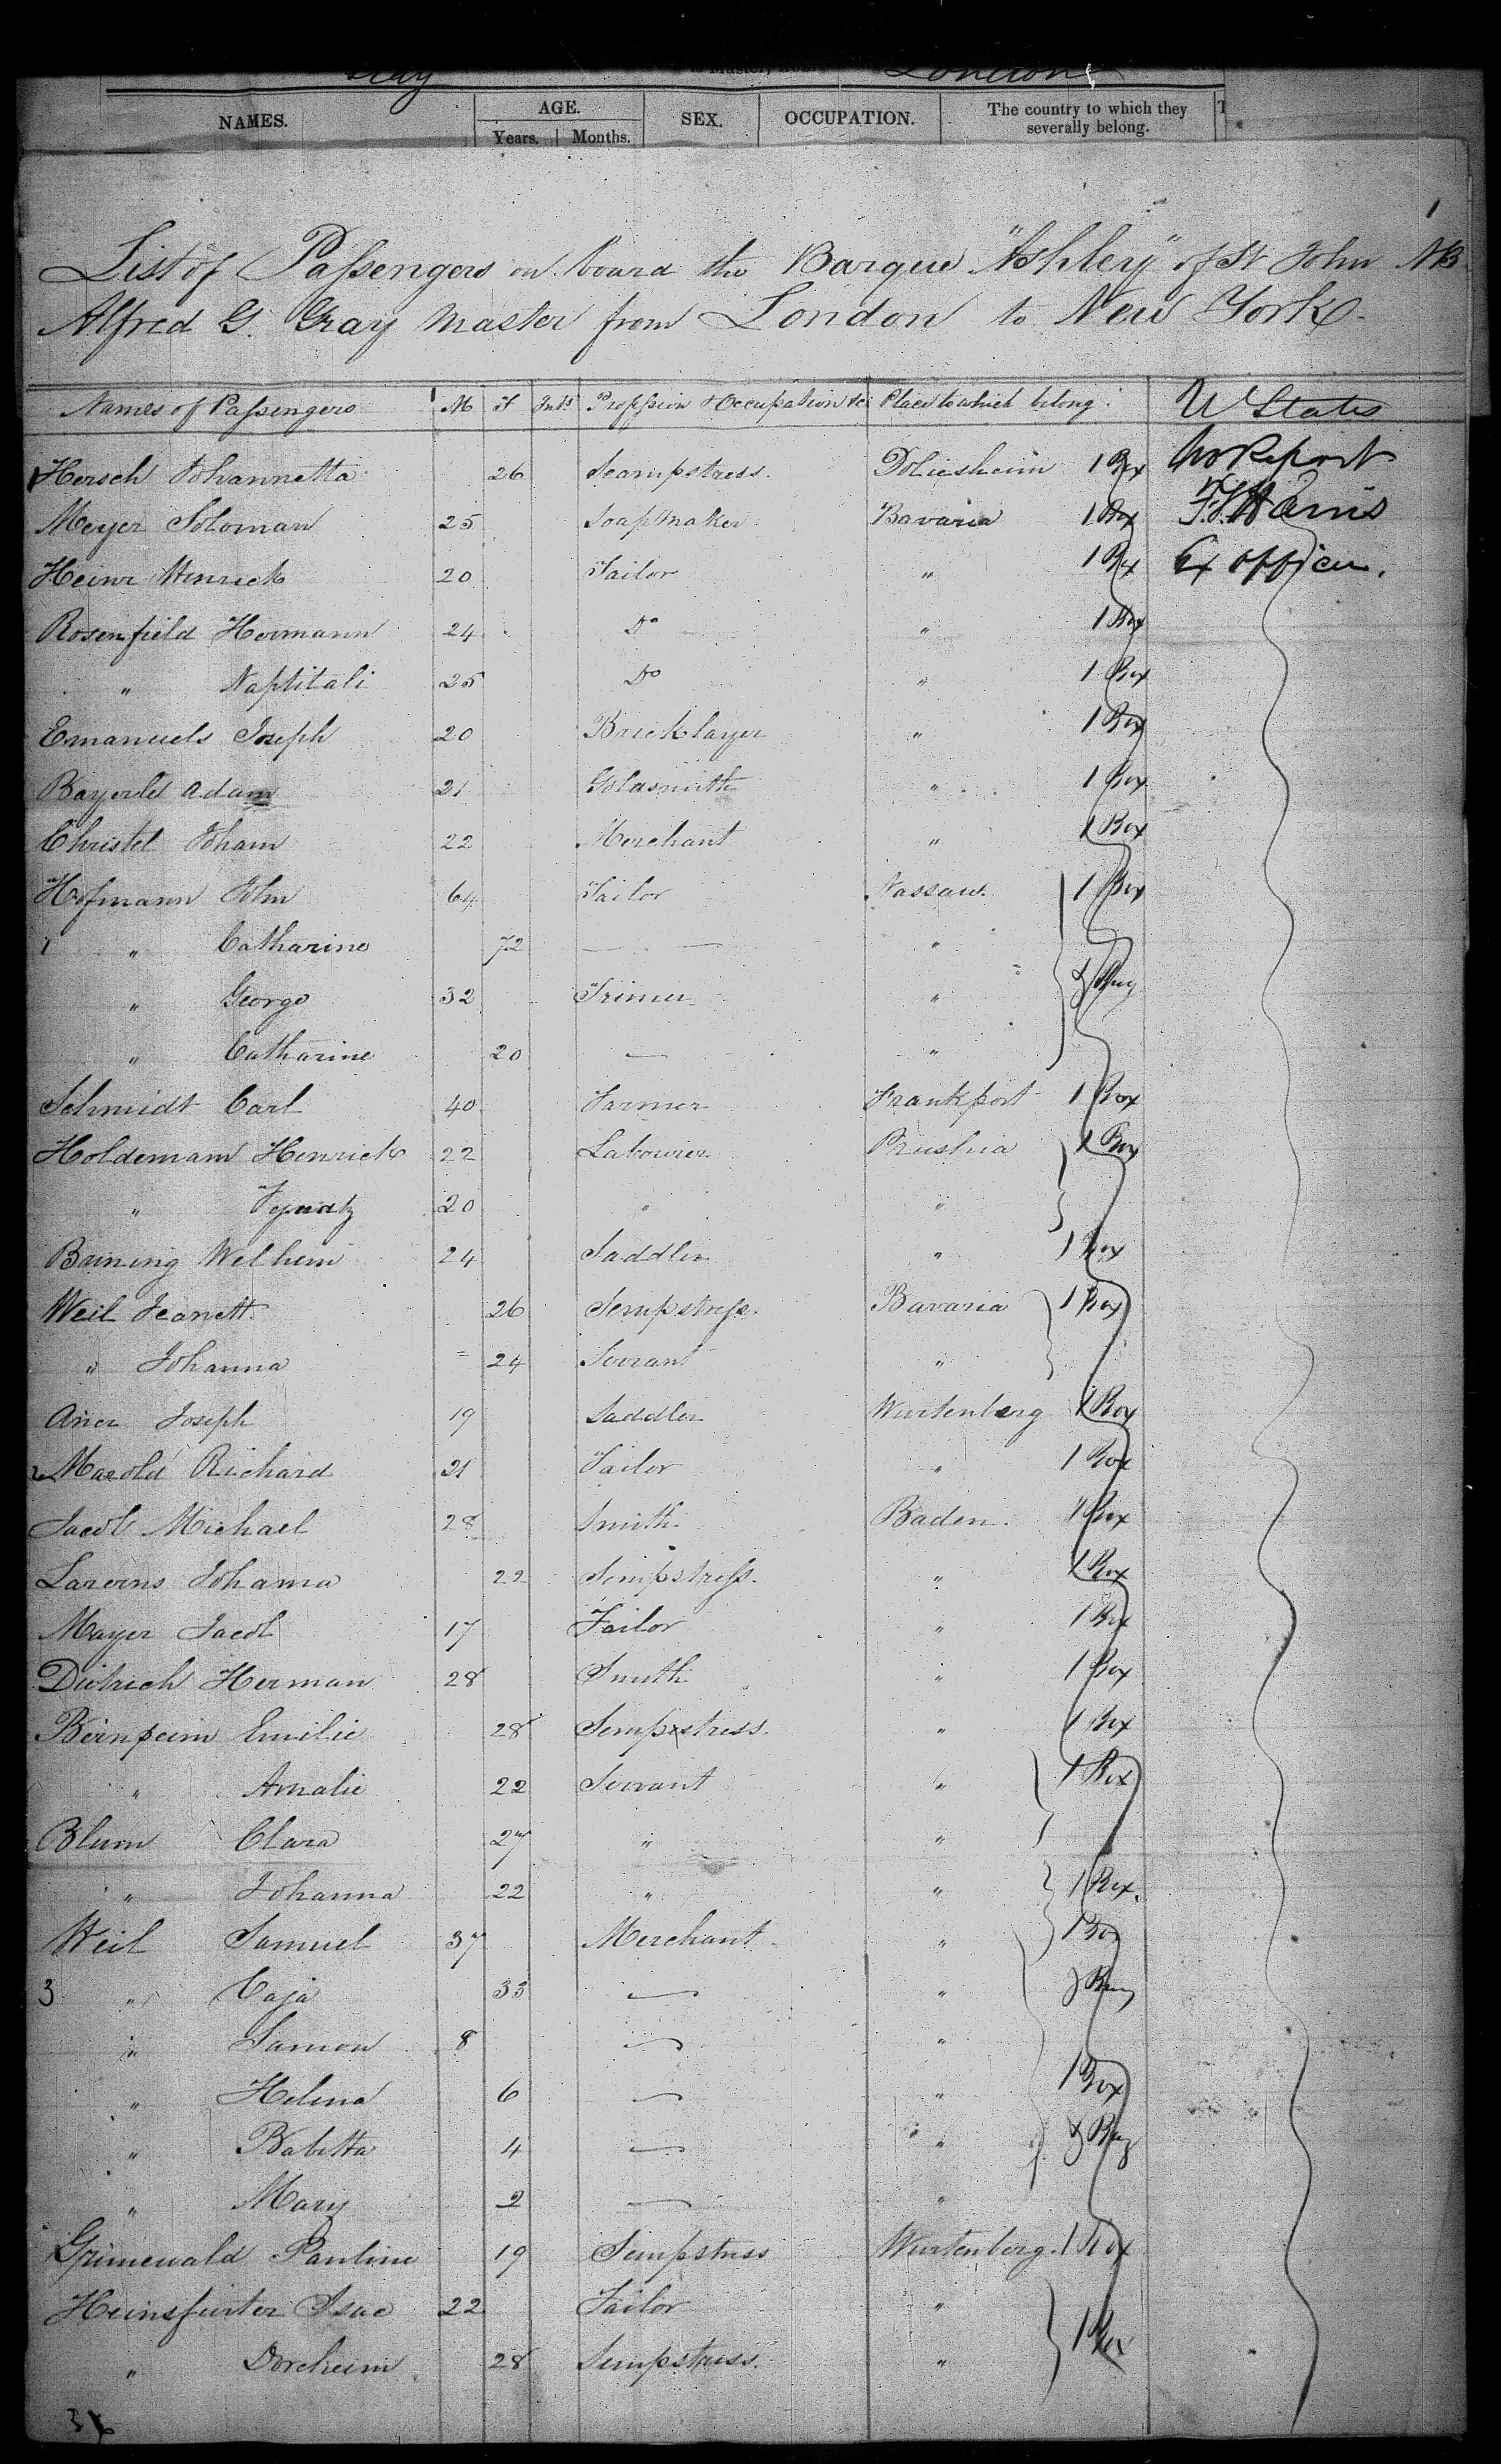 London
NAMES. AGE. SEX. OCCUPATION. The country to which they severally belong.
Years. Months.
1
List of Passengers on board the Barque "Ashley" of St John NB
Alfred G. Gray Master from London to New York
Names of Passengers M F Infts Profession & Occupation &c Place to which belong. U States
Hersch Johannetta 26 Seampstress. 1 Box No Report
Meyer Soloman 25 Soap Maker Bavaria 1 Box
Heinr Henrick 20 Tailor " 1 Box Ex officer.
Rosenfield Hermann 24 Do " 1 Box
" Naptitali 25 Do " 1 Box
Emanuels Joseph 20 Bricklayer " 1 Box
Bayerle Adam 21 Goldsmith " 1 Box
Christel Joham 22 Merchant " 1 Box
Hofmann John 64 Tailor Nassau. 1 Box
1 " Catharine 72 — "
" George 32 " & Bag
" Catharine 20 — "
Schmidt Carl 40 Farmer Frankport 1 Box
Holdemann Henrick 22 Labourer Prushia 1 Box
" 20 " "
Welhem 24 Saddler " 1 Box
Weil Jeanett 26 Sempstress. Bavaria 1 Box
" Johanna 24 Servant "
Joseph 19 Saddler Wurtenberg 1 Box
2 Marold Richard 21 Tailor " 1 Box
Jacob Michael 28 Smith Baden. 1 Box
Johanna 22 Sempstress. " 1 Box
Mayer Jacob 17 Tailor " 1 Box
Dietrich Herman 28 Smith " 1 Box
Bernpeim Emilie 28 Sempstress. " 1 Box
" Amalie 22 Servant " 1 Box
Blum Clara 27 " "
" Johanna 22 " " 1 Box.
Weil Samuel 37 Merchant " 1 Box
3 " Caja 33 — " & Bag
" Samon 8 — "
" Helena 6 — " 1 Box
" Babetta 4 — " & Bag
" Mary 2 — "
Grunewald Pauline 19 Sempstress Wurtenberg. 1 Box
Heinsfurter Isac 22 Tailor " 1 Box
" Dorcheim 28 Sempstress. "